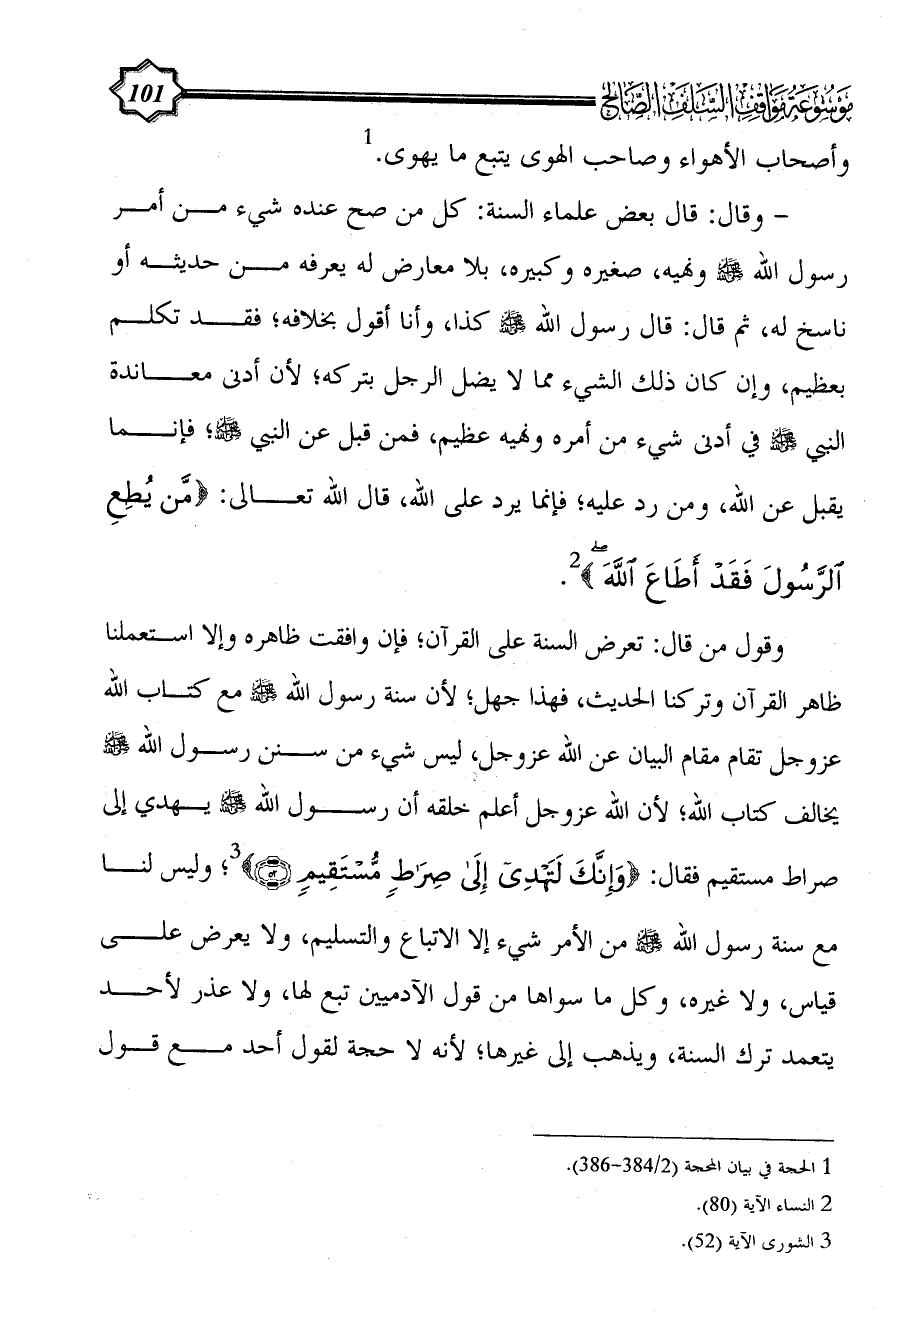 موسوعة مواقف السلف الصالح 101
وأصحاب الأهواء وصاحب الهوى يتبع ما يهوى.1
- وقال: قال بعض علماء السنة: كل من صح عنده شيء من أمر
رسول الله ﷺ ونهيه، صغيره وكبيره، بلا معارض له يعرفه من حديثه أو
ناسخ له، ثم قال: قال رسول الله ﷺ كذا، وأنا أقول بخلافه؛ فقد تكلم
بعظيم، وإن كان ذلك الشيء مما لا يضل الرجل بتركه؛ لأن أدنى معاندة
النبي ﷺ في أدنى شيء من أمره ونهيه عظيم، فمن قبل عن النبي ﷺ؛ فإنما
يقبل عن الله، ومن رد عليه؛ فإنما يرد على الله، قال الله تعالى: ﴿مَّن يُطِعِ
ٱلرَّسُولَ فَقَدْ أَطَاعَ ٱللَّهَۖ﴾2.
وقول من قال: تعرض السنة على القرآن؛ فإن وافقت ظاهره وإلا استعملنا
ظاهر القرآن وتركنا الحديث، فهذا جهل؛ لأن سنة رسول الله ﷺ مع كتاب الله
عزوجل تقام مقام البيان عن الله عزوجل، ليس شيء من سنن رسول الله ﷺ
يخالف كتاب الله؛ لأن الله عزوجل أعلم خلقه أن رسول الله ﷺ يهدي إلى
صراط مستقيم فقال: ﴿وَإِنَّكَ لَتَهْدِىٓ إِلَىٰ صِرَٰطٍ مُّسْتَقِيمٍ ٥٢﴾3؛ وليس لنا
مع سنة رسول الله ﷺ من الأمر شيء إلا الاتباع والتسليم، ولا يعرض على
قياس، ولا غيره، وكل ما سواها من قول الآدميين تبع لها، ولا عذر لأحد
يتعمد ترك السنة، ويذهب إلى غيرها؛ لأنه لا حجة لقول أحد مع قول
1 الحجة في بيان المحجة (2/384-386).
2 النساء الآية (80).
3 الشورى الآية (52).